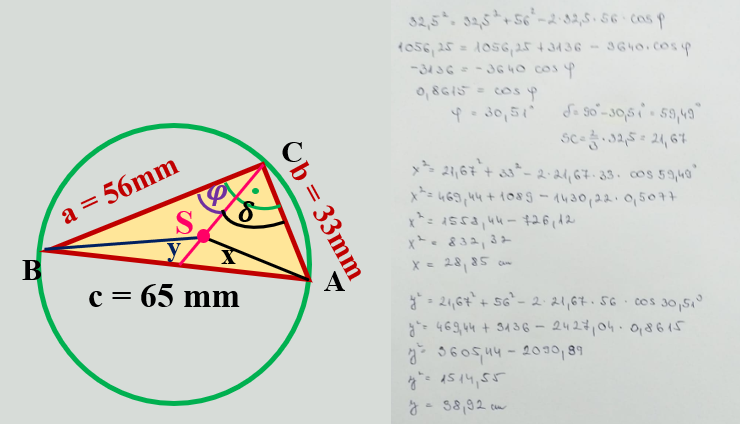 C
a = 56mm
b = 33mm
φ
δ
S
y
x
B
A
c = 65 mm
32,5² = 32,5² + 56² - 2·32,5·56·cos φ
1056,25 = 1056,25 + 3136 - 3640·cos φ
-3136 = -3640 cos φ
0,8615 = cos φ
φ = 30,51° δ = 90° - 30,51° = 59,49°
SC = 2/3 · 32,5 = 21,67
x² = 21,67² + 33² - 2·21,67·33·cos 59,49°
x² = 469,44 + 1089 - 1430,22·0,5077
x² = 1558,44 - 726,12
x² = 832,32
x = 28,85 cm
y² = 21,67² + 56² - 2·21,67·56·cos 30,51°
y² = 469,44 + 3136 - 2427,04·0,8615
y² = 3605,44 - 2090,89
y² = 1514,55
y = 38,92 cm